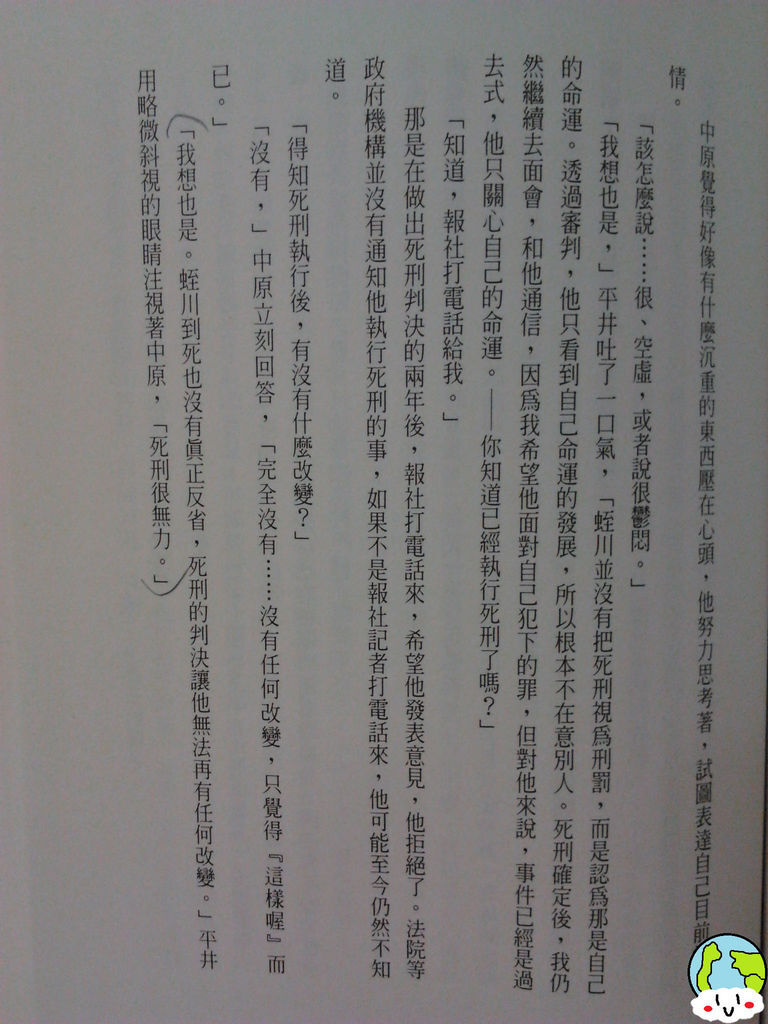 中原覺得好像有什麼沉重的東西壓在心頭，他努力思考著，試圖表達自己目前
情。
「該怎麼說……很、空虛，或者說很鬱悶。」
「我想也是，」平井吐了一口氣，「蛭川並沒有把死刑視爲刑罰，而是認爲那是自己
的命運。透過審判，他只看到自己命運的發展，所以根本不在意別人。死刑確定後，我仍
然繼續去面會，和他通信，因爲我希望他面對自己犯下的罪，但對他來說，事件已經是過
去式，他只關心自己的命運。——你知道已經執行死刑了嗎？」
「知道，報社打電話給我。」
那是在做出死刑判決的兩年後，報社打電話來，希望他發表意見，他拒絕了。法院等
政府機構並沒有通知他執行死刑的事，如果不是報社記者打電話來，他可能至今仍然不知
道。
「得知死刑執行後，有沒有什麼改變？」
「沒有，」中原立刻回答，「完全沒有……沒有任何改變，只覺得『這樣喔』而
已。」
「我想也是。蛭川到死也沒有眞正反省，死刑的判決讓他無法再有任何改變。」平井
用略微斜視的眼睛注視著中原，「死刑很無力。」